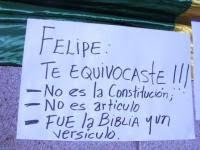 FELIPE:
TE EQUIVOCASTE !!!
- No es la Constitución;
- No es articulo
- FUE la BIBLIA y un
versiculo.